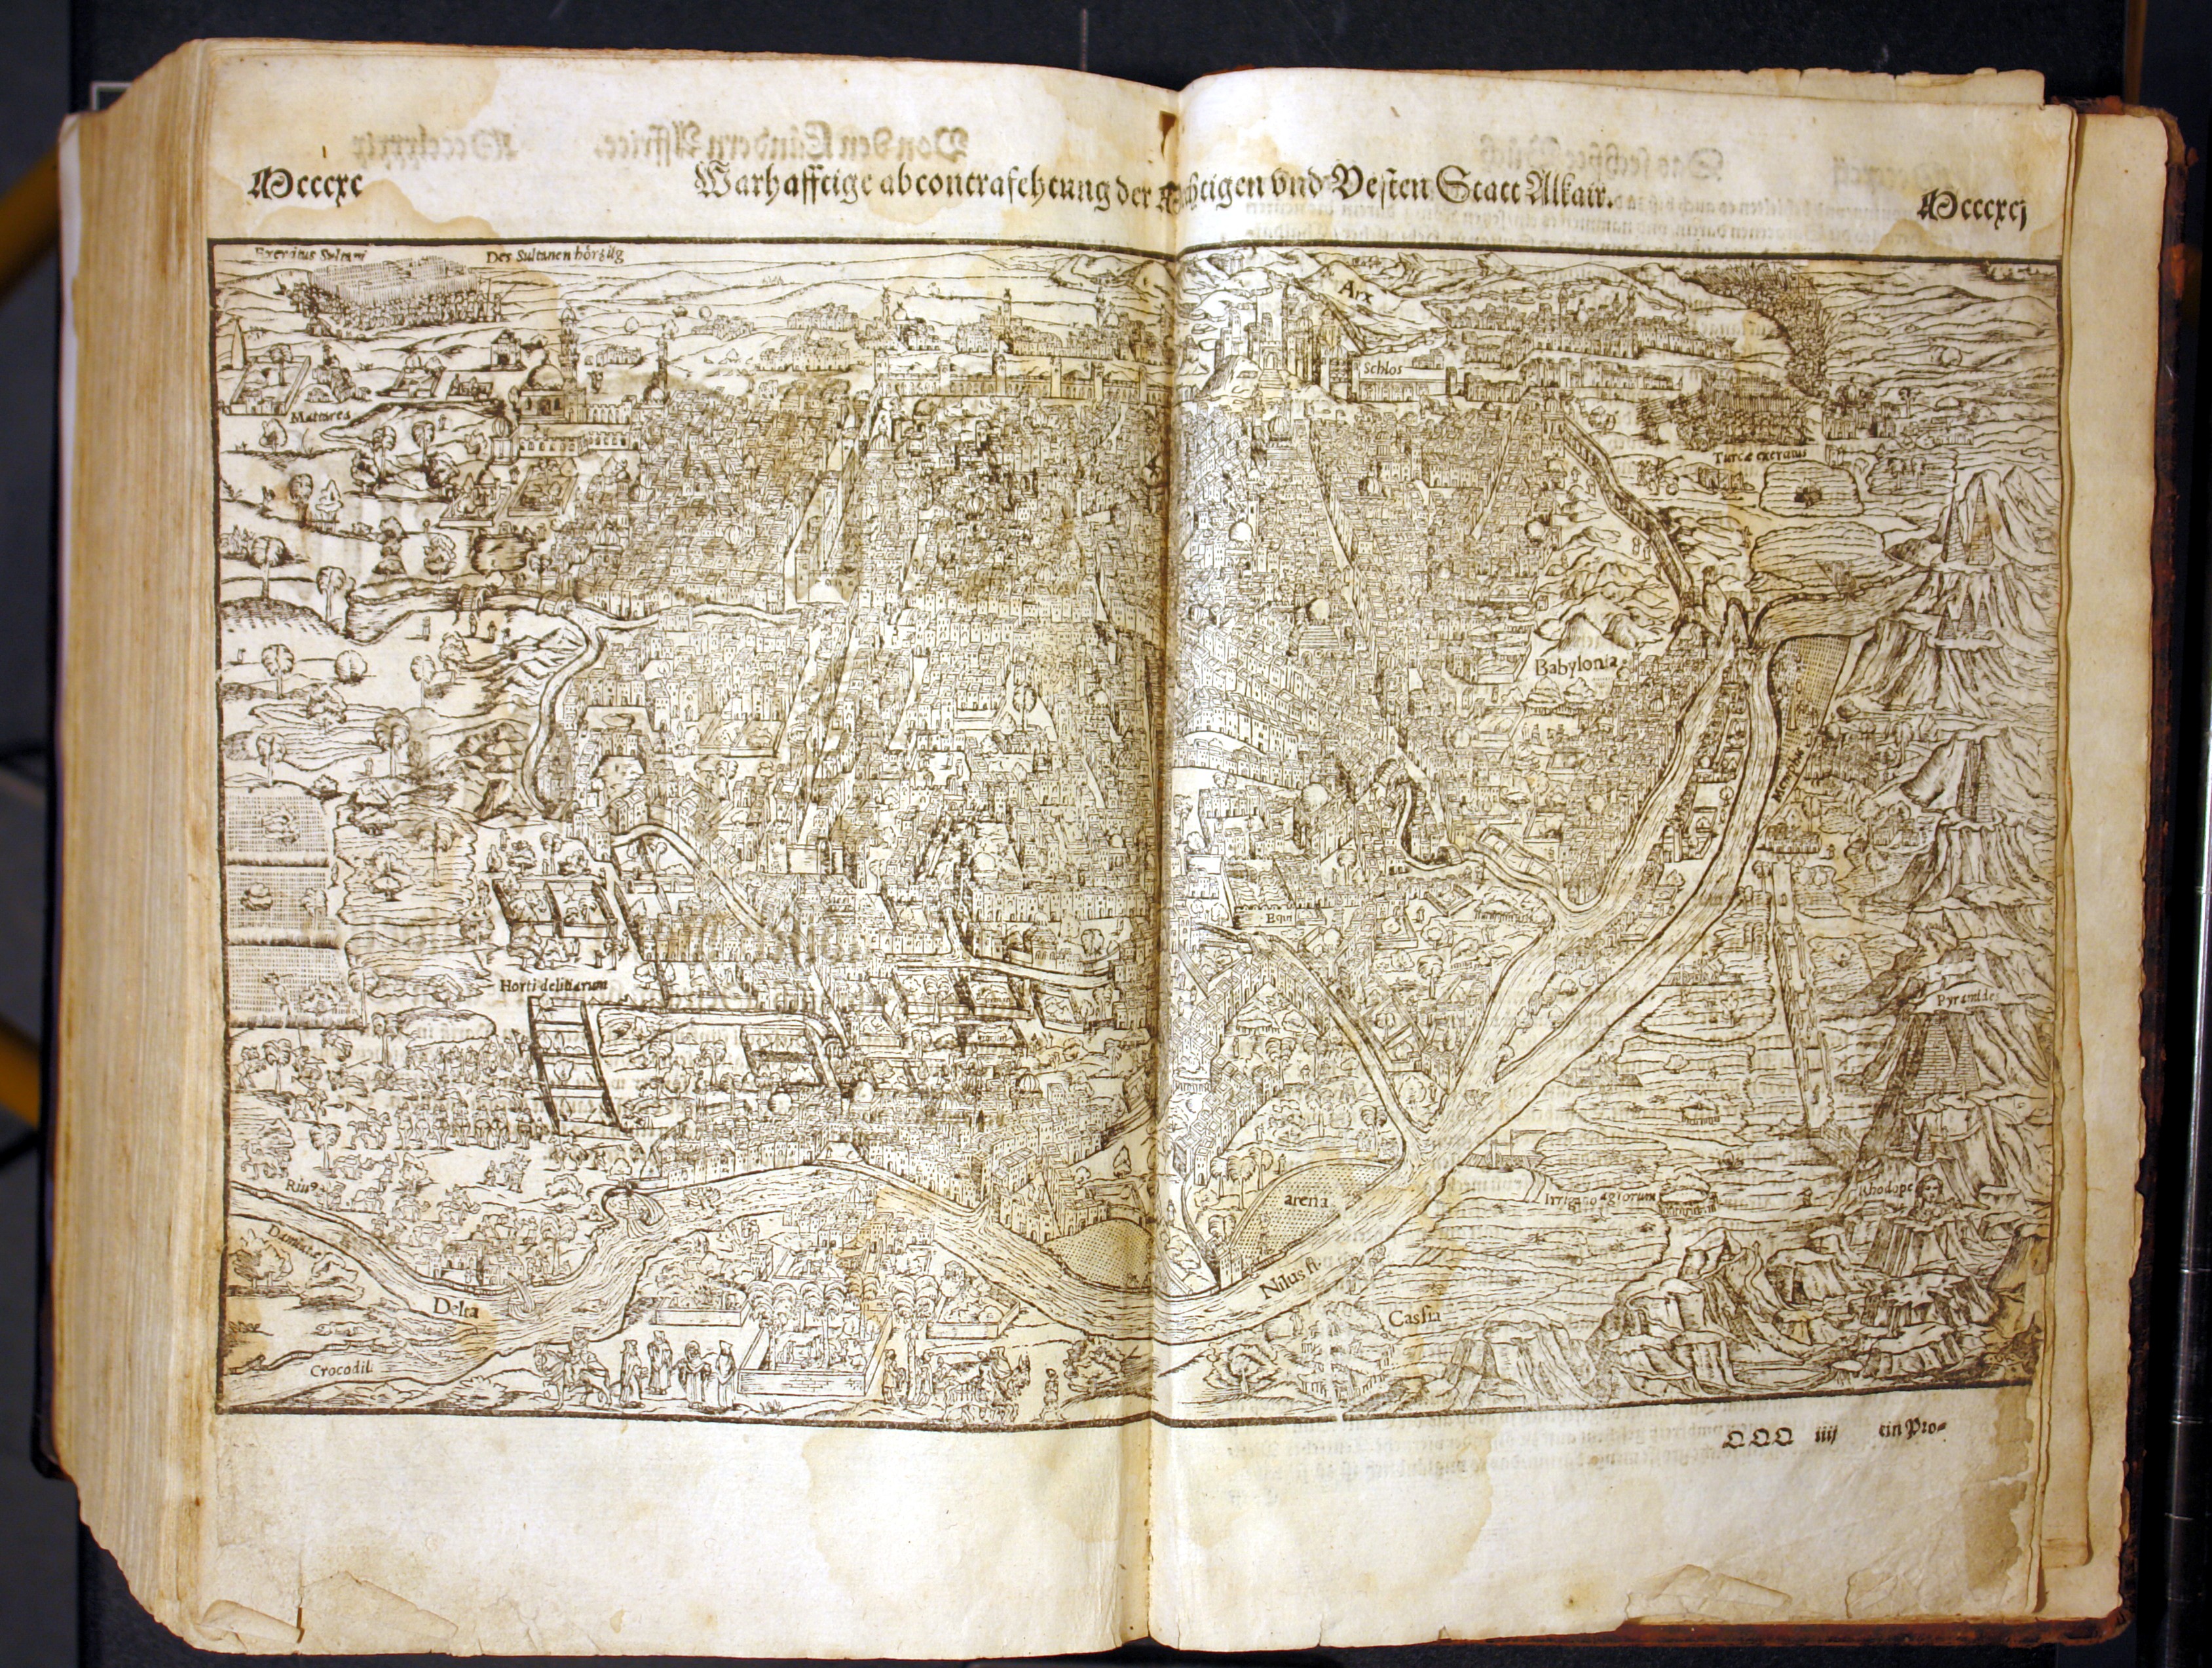 Mccccxc
Warhafftige abcontrafehtung der Mechtigen vnd Vesten Statt Alkair.
Mccccxcj
Exercitus Sultani
Des Sultanen hörzüg
Arx
Schlos
Mattarea
Turcæ exercitus
Babylonia
Memphis
Equi
Horti delitiarum
Pyramides
arena
Irrigatio agrorum
Rhodope
Riuꝰ
Damiatæ
Delta
Nilus fl.
Cassia
Crocodil
QQQ iiij
ein Pro-